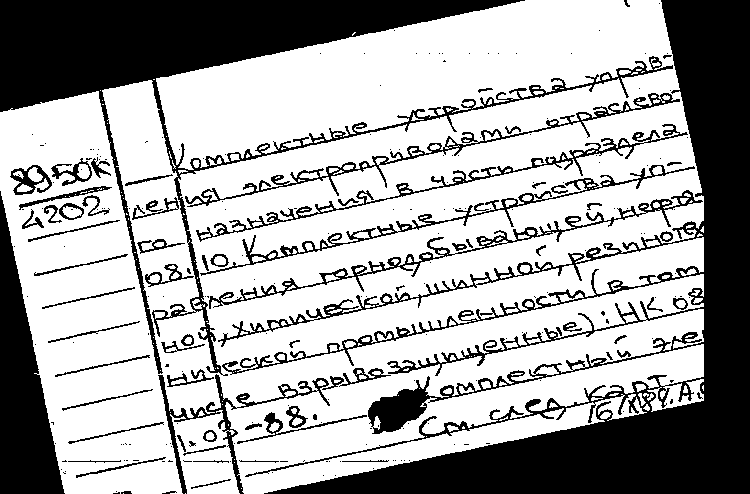 8950к
4202
Комплектные устройства управ-
ления электроприводами отраслево-
го назначения в части подраздела
08.10. Комплектные устройства уп-
равления горнодобывающей, нефтя-
ной, химической, шинной, резинотех
нической промышленности (в том
числе взрывозащищенные): НК 08
1.03-88. Комплектный эле
См. след. карт.